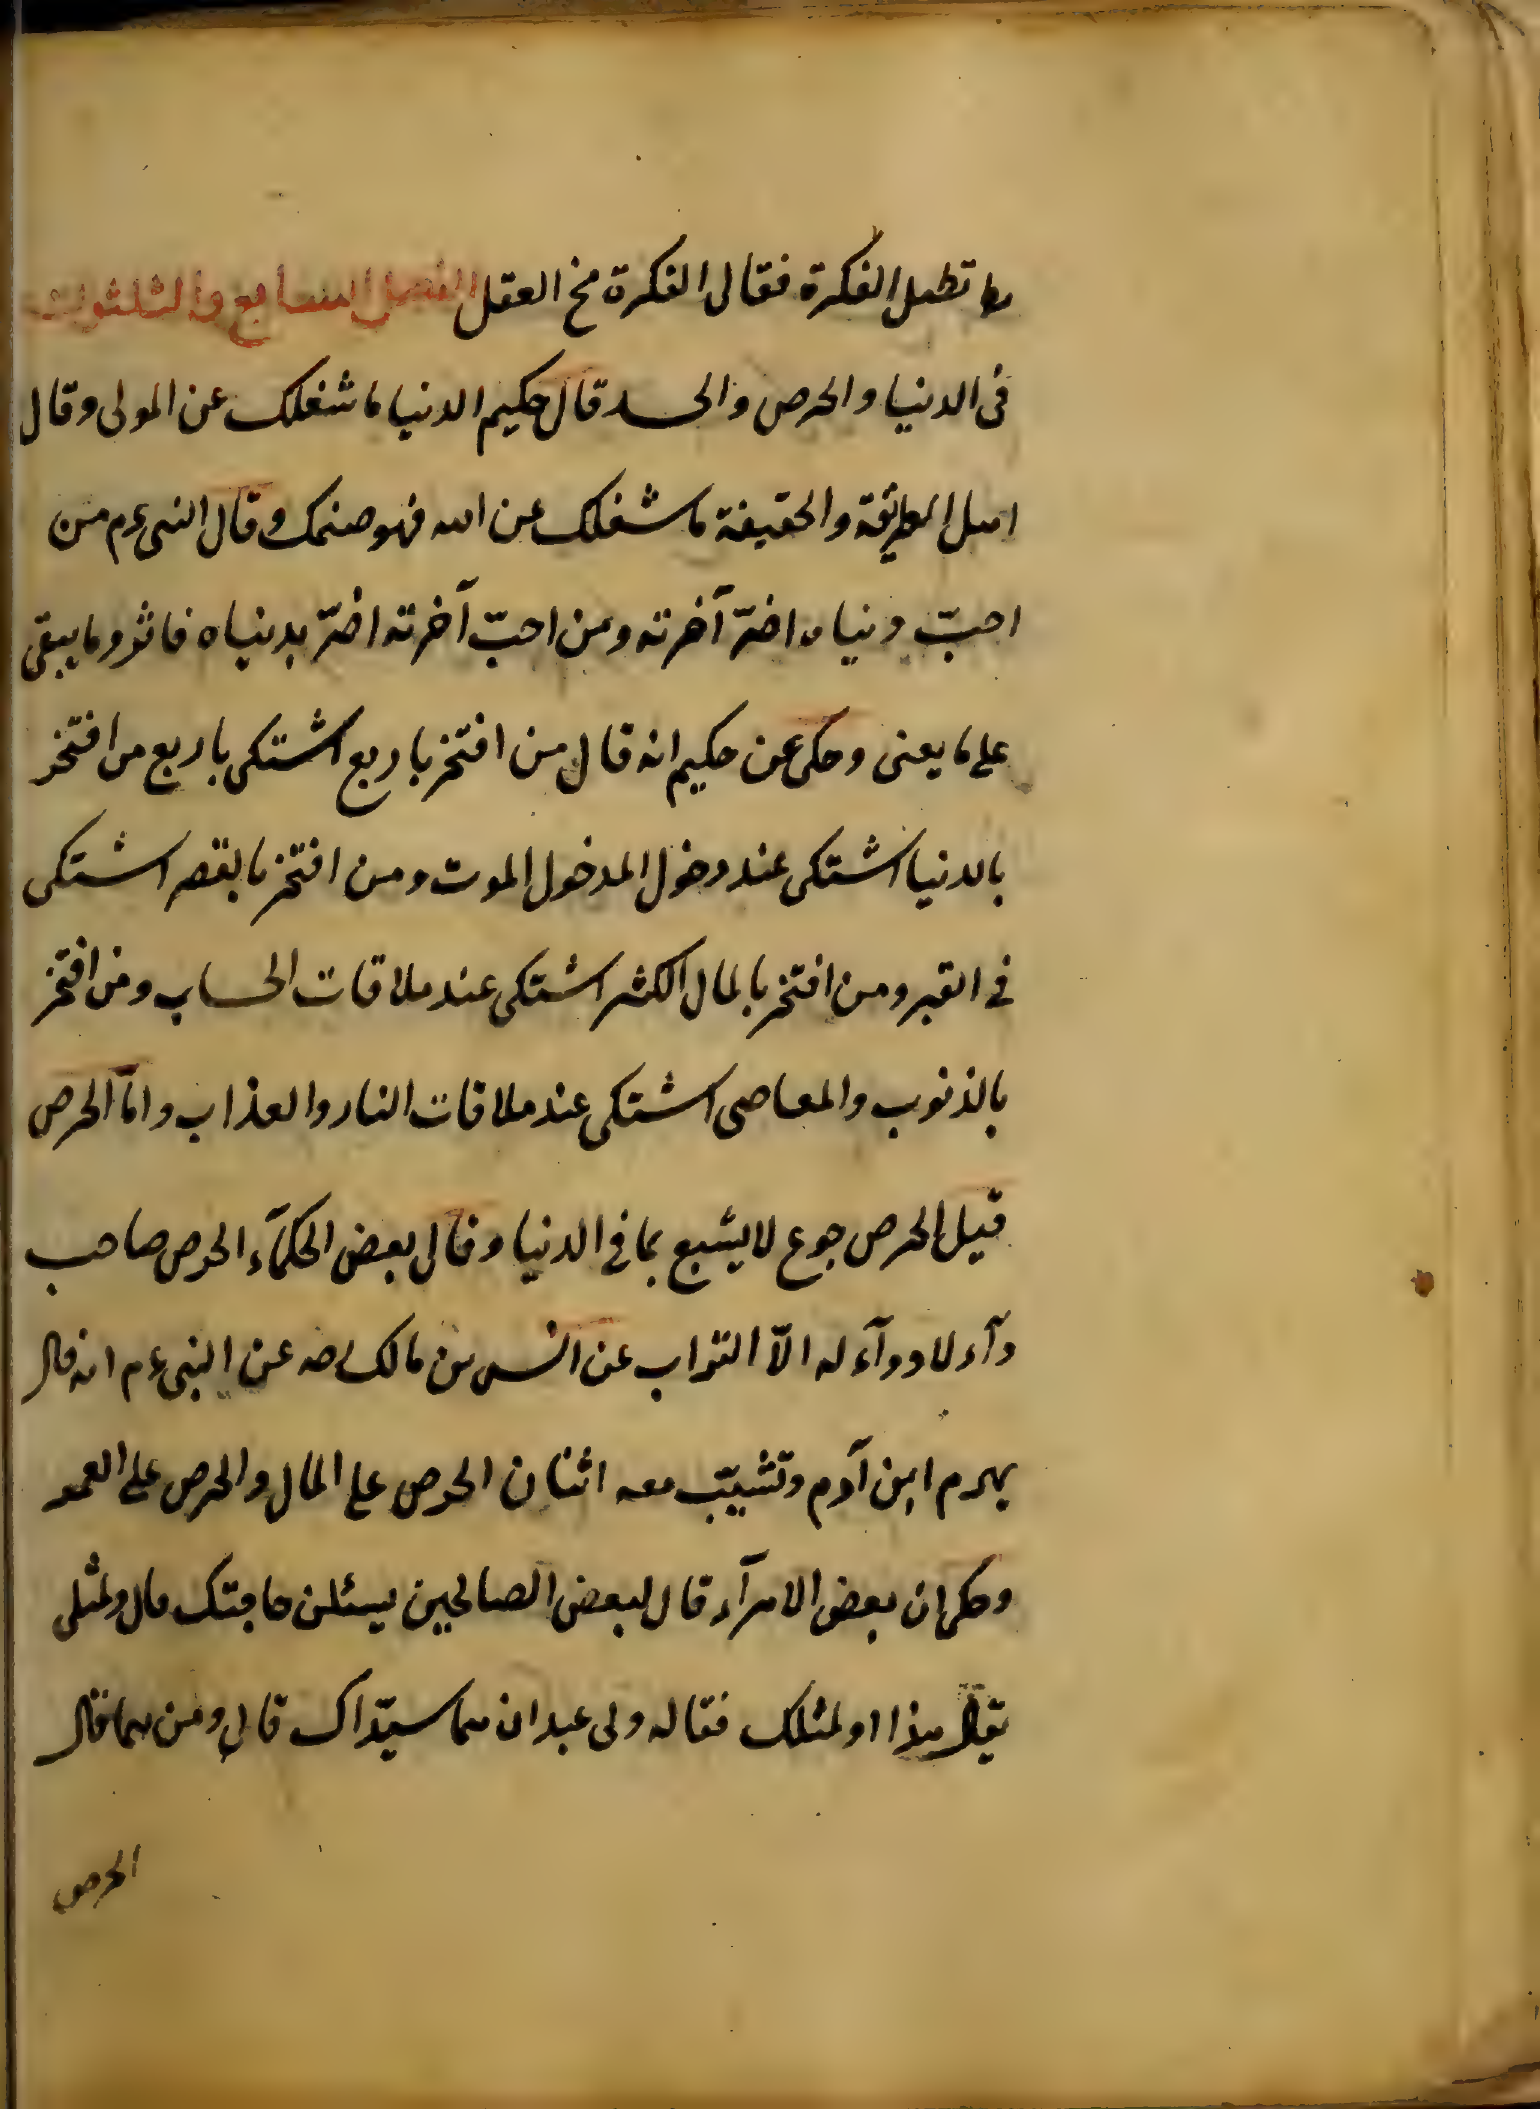 ما تطيل الفكرة فقال الفكرة مخ العقل الفصل السابع والثلثون
فى الدنيا والحرص والحسد قال حكيم الدنيا ما شغلك عن المولى وقال
اهل الطريقة والحقيقة ما شغلك عن الله فهو صنمك وقال النبى عم من
احبّ دنياه اضرّ آخرته ومن احبّ آخرته اضرّ بدنياه فاثروا ما يبقى
على ما يعنى وحكى عن حكيم انه قال من افتخر باربع اشتكى باربع من افتخر
بالدنيا اشتكى عند دخول المدخول الموت ومن افتخر بالقصر اشتكى
فى القبر ومن افتخر بالمال الكثير اشتكى عند ملاقات الحساب ومن افتخر
بالذنوب والمعاصى اشتكى عند ملاقات النار والعذاب وامّا الحرص
قيل الحرص جوع لا يشبع بما فى الدنيا وقال بعض الحكمآء الحرص صاحب
دآء لا دوآء له الّا التراب عن انس بن مالك رضه عن النبى عم انه قال
يهرم ابن آدم وتشيبّ معه اثنان الحرص على المال والحرص على العمر
وحكى ان بعض الامرآء قال لبعض الصالحين يسئلن حاجتك قال ولمثلى
يقال هذا او لمثلك فقال له ولى عبدان هما سيّداك قال ومن هما قال
الحرص